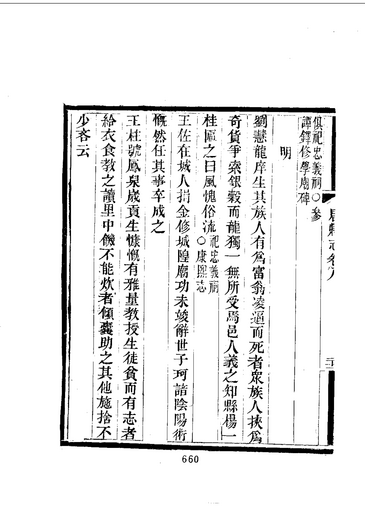 俱祀忠義祠○參
譚鐸修學廟碑
明
劉慧龍庠生其族人有爲富翁凌逼而死者衆族人挾爲
奇貨爭索銀穀而龍獨一無所受焉邑人義之知縣楊一
桂匾之曰風憤俗流○祀忠義祠康熙志
王佐在城人捐金修城隍廟功未竣辭世子珂諳陰陽術
慨然任其事卒成之
王柱號鳳泉歲貢生慷慨有雅量教授生徒貧而有志者
給衣食教之讀里中饑不能炊者傾囊助之其他施捨不
少吝云
660